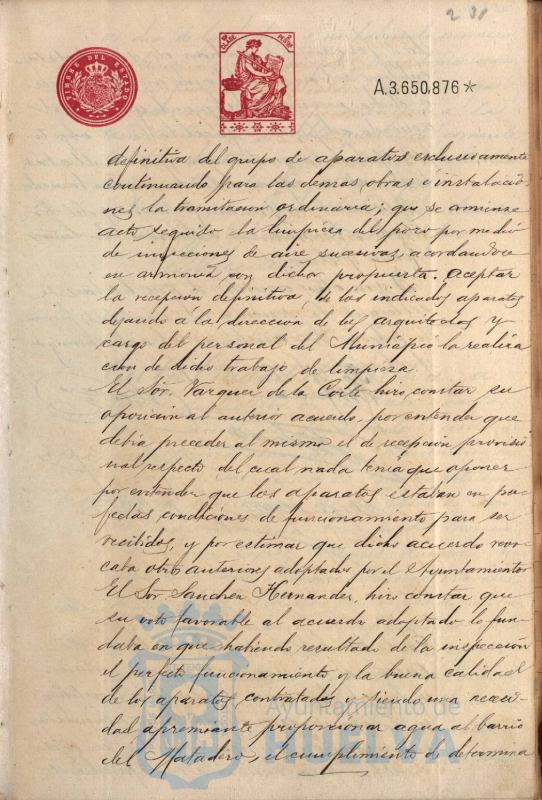 2
TIMBRE DEL ESTADO
A.3.650,876
definitiva del grupo de aparatos exclusivamente
continuando para las demas obras e instalacio
nes la tramitacion ordinaria; que se comience
acto seguido la limpieza del pozo por medio
de inyecciones de aire sucesivas, acordandose
en armonia con dicha propuesta. aceptar
la recepción definitiva de los indicados aparatos
dejando á la direccion de los arquitectos y
cargo del personal del Municipio la realiza
cion de dicho trabajo de limpieza.
El Sór. Vazquez de la Corte hizo constar su
oposicion al anterior acuerdo, por entender que
debia preceder al mismo el de recepción provisio
nal respecto del cual nada tenia que oponer
por entender que los aparatos estaban en per
fectas condiciones de funcionamiento para ser
recibidos, y por estimar que dicho acuerdo revo
caba otros anteriores adoptados por el Ayuntamiento
El Sór Sanchez Hernandez, hizo constar que
su voto favorable al acuerdo adoptado lo fun
daba en que habiendo resultado de la inspección
el perfecto funcionamiento y la buena calidad
de los aparatos contratados y siendo una necesi-
dad apremiante proporcionar agua al barrio
del Matadero, el cumplimiento de determina
Ayuntamiento de
HUELVA